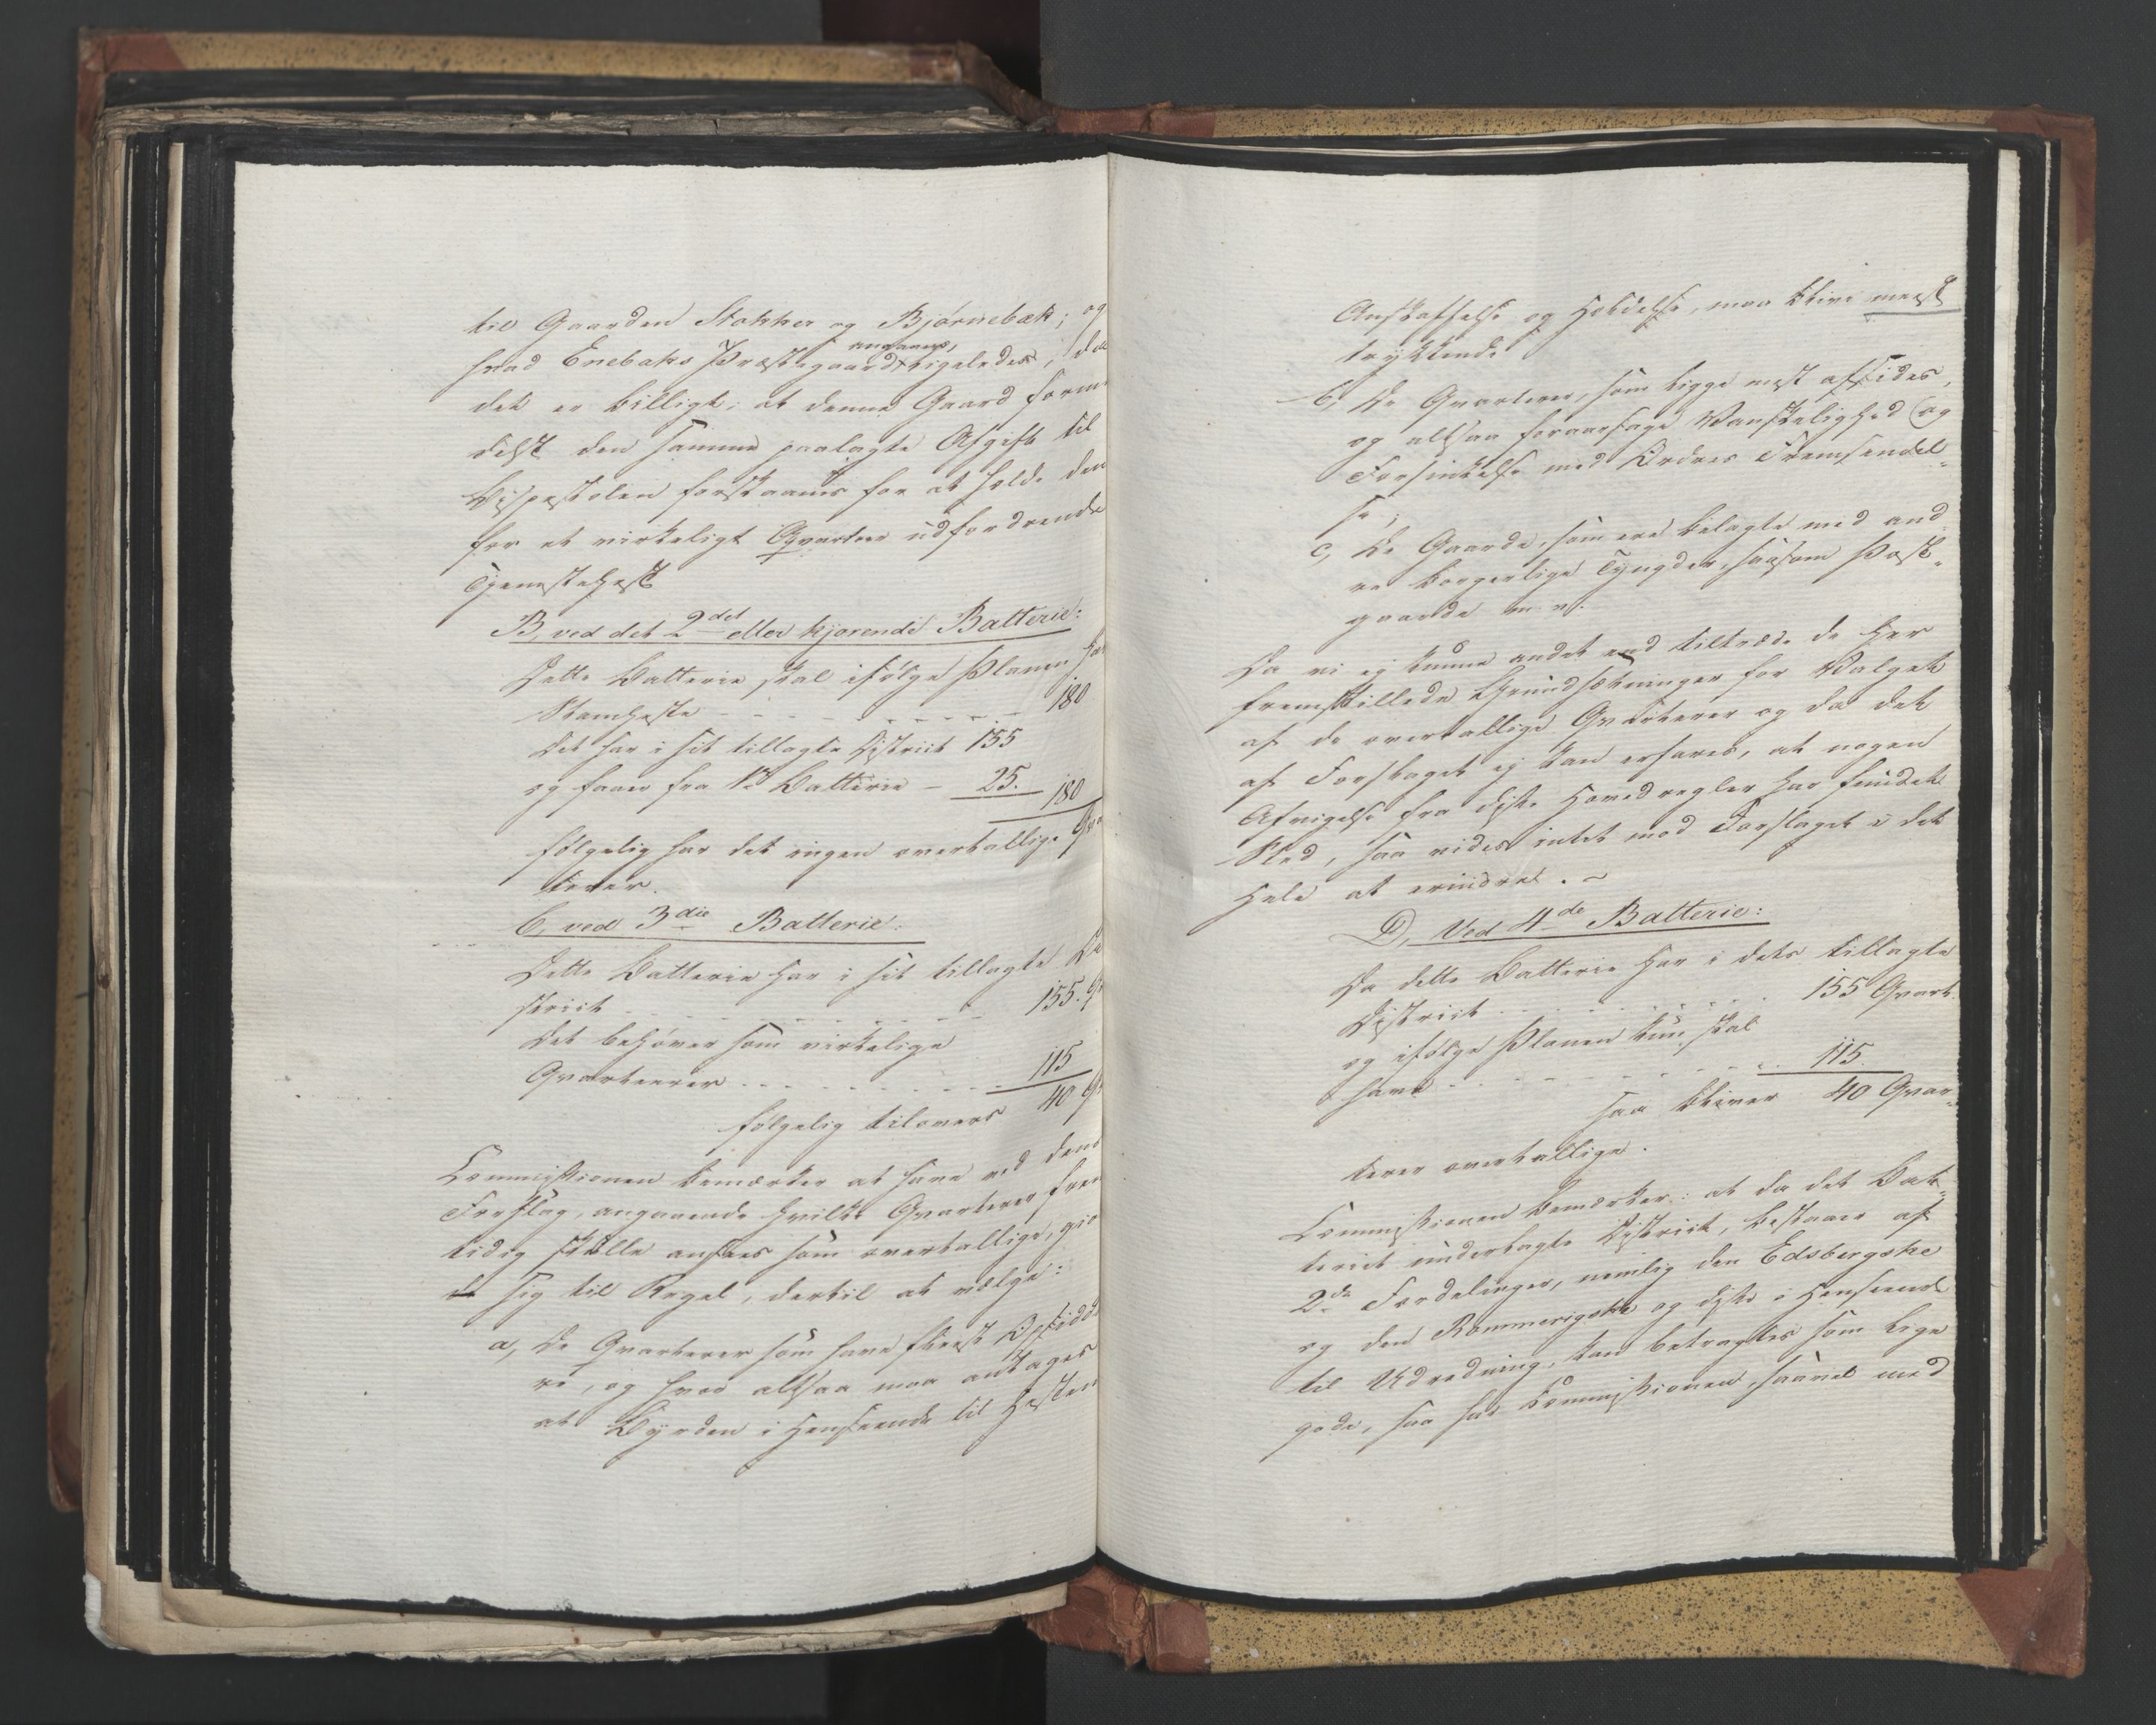 til Gaarden Stokker og Bjørnebæk; og
hvad Enebaks Præstegaard angaaer, ligeledes, da
det er billigt, at denne Gaard form
delst den samme paalagte Afgift til
Bispestolen forskaanes for at holde den
for et virkeligt Qvarteer udfordrende
Tjenestehest
B, ved det 2det eller kjørende Batterie:
Dette Batterie skal ifølge Planen have
Stamheste - - - 180
Det har i sit tillagte District 155
og faaer fra 1te Batterie - 25. 180
følgelig har det ingen overtallige Qvar
terer.
C, ved 3die Batterie:
Dette Batterie har i sit tillagte Di
strict - - - 155. Qv
Det behøver som virkelige
Qvarterer - - - 115
følgelig tilovers 40 Qv
Commissionen bemærker at have ved dens
Forslag, angaaende hvilke Qvarterer frem
tidig skulle ansees som overtallige, gior
t sig til Regel, dertil at vælge:
a, De Qvarterer som have fleest Opsidde
re, og hvor altsaa maa antages
at Byrden i Henseende til Hestens
Anskaffelse og Holdelse, maa blive meest
trykkende
b, De Qvarterer, som ligge mest afsides,
og altsaa foraarsage Vanskelighed (og
Forsinkelse med Ordres Fremsendel-
se;
c, De Gaarde, som ere belagte med and
re borgerlige Tyngder, saasom Post-
gaarde m. v.
Da vi ej kunne andet end tiltræde de her
fremstillede Grundsætninger for Valget
af de overtallige Qvarterer og da det
af Forslaget ej kan erfares, at nogen
Afvigelse fra disse Hovedregler har fundet
Sted, saa vides intet mod Forslaget i det
Hele at erindre. -
D, Ved 4de Batterie:
Da dette Batterie har i dets tillagte
District - - - 155 Qvart.
og ifølge Planen kun skal
have - - - 115
saa bliver 40 Qvar-
terer overtallige.
Commissionen bemærker: at da det Bat-
teriet underlagte District, bestaaer af
2de Fordelinger, nemlig den Edsbergske
og den Rommerigske og disse i Henseende
til Udredning, kan betragtes som lige
gode, saa har Commissionen, saavel med